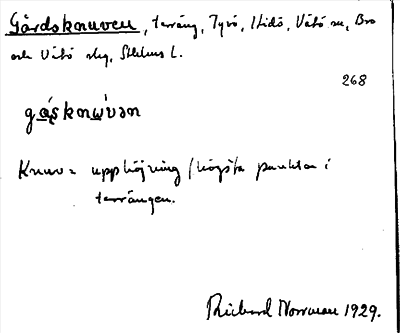 Gårdsknuven, terräng, Tyrö, Håtö, Vätö sn, Bro
och Vätö skg, Sthlms L.
268
gɑ̀sknɯ̀vən
Knuv = upphöjning / högsta punkten i
terrängen.
Richard Norrman 1929.